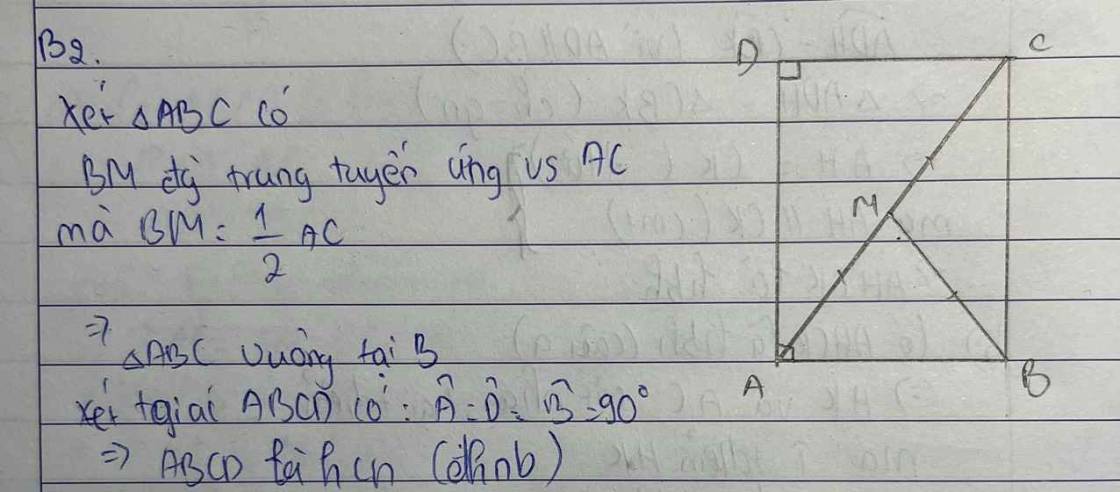 B2.
Xét △ABC có
BM là trung tuyến ứng vs AC
mà BM = 1/2 AC
⇒ △ABC vuông tại B
Xét tgiác ABCD có : Â = D̂ = B̂ = 90°
⇒ ABCD là hcn (dhnb)
D C
M
A B